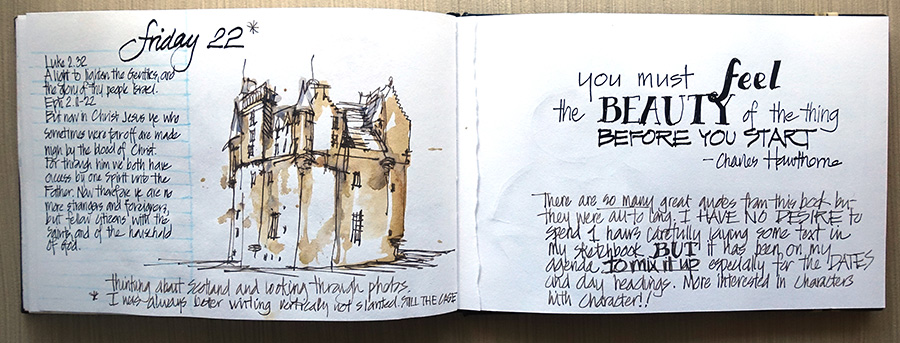 friday 22*
Luke 2.32
A light to lighten the Gentiles, and
the glory of thy people Israel.
Eph 2.11-22
But now in Christ Jesus ye who
sometimes were far off are made
by the blood of Christ.
For through him we both have
access by one Spirit unto the
Father. Now therefore ye are no
more strangers and foreigners,
but fellow citizens with the
saints, and of the household
of God.
thinking about Scotland and looking through photos.
* I was always better writing vertically not slanted. STILL THE CASE
you must feel
the BEAUTY of the thing
BEFORE YOU START
- Charles Hawthorne
There are so many great quotes from this book but
they were all too long. I HAVE NO DESIRE to
spend 1 hours carefully laying some text in
my sketchbook BUT it has been on my
agenda to mix it up especially for the DATES
and day headings. More interested in characters
with character!!